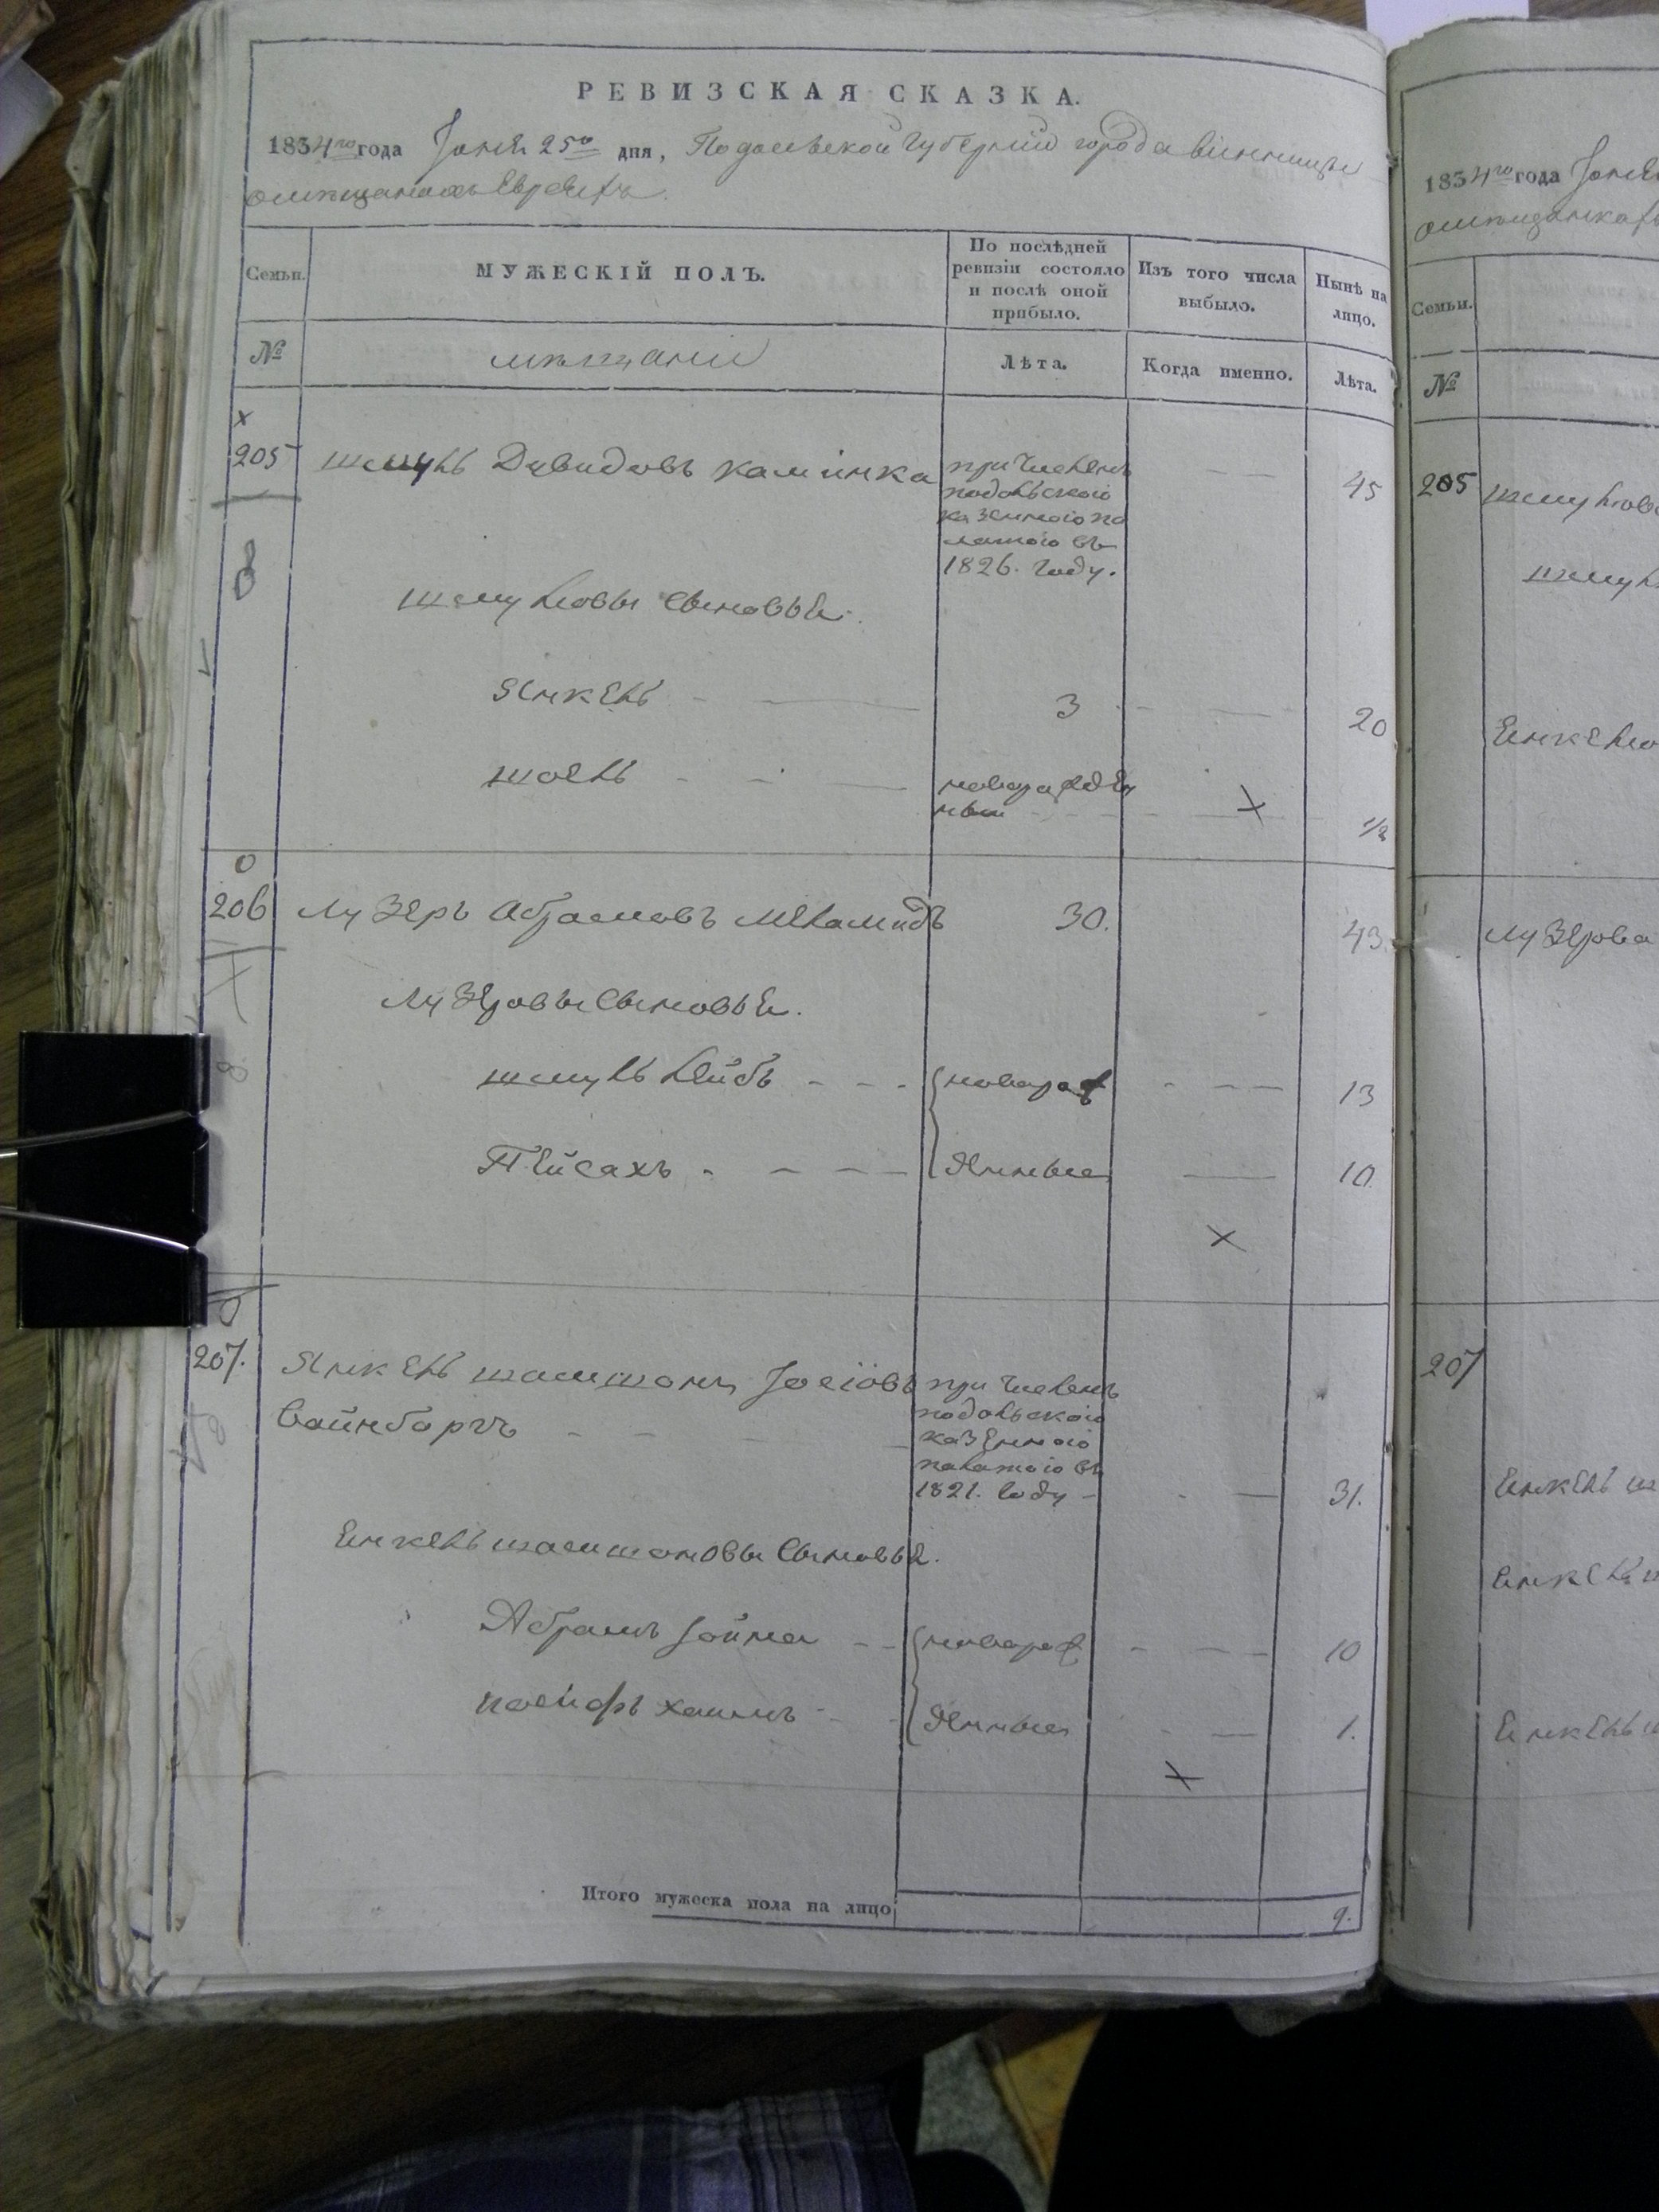 РЕВИЗСКАЯ СКАЗКА.
1834го года Іюня 25го дня, Подольской Губерніи города Вінницы
омѣщанахъ Евреяхъ.
Семьи. МУЖЕСКІЙ ПОЛЪ. По послѣдней ревизіи состояло и послѣ оной прибыло. Изъ того числа выбыло. Нынѣ на лицо.
№ мѣщани Лѣта. Когда именно. Лѣта.
205 шмуль Давидовъ камінка причислен 45
подольского
казенного па
латою въ
1826. году.
шмулевы сыновья.
Янкель 3 20
шоель новорожден
ны 1/2
206 Лузеръ Абрамовъ Меламидъ 30. 43.
Лузеровы сыновья.
шмуль Лейбъ новорож 13
Пейсахъ денные 10.
207. Янкель шамшонъ Іосіовъ причислен
Вайнборгъ подольского
казенного
палатою въ
1821. году 31.
Енкель шамшоновы сыновья.
Абрамъ Іойна новорож 10
иосифъ хаимъ денные 1.
Итого мужеска пола на лицо 9.
1834го года Іюня
омѣщанка
Семьи.
№
205 шмулева
шмул
Енкелю
Лузерова
207
Енкель ш
Енкель
Енкель